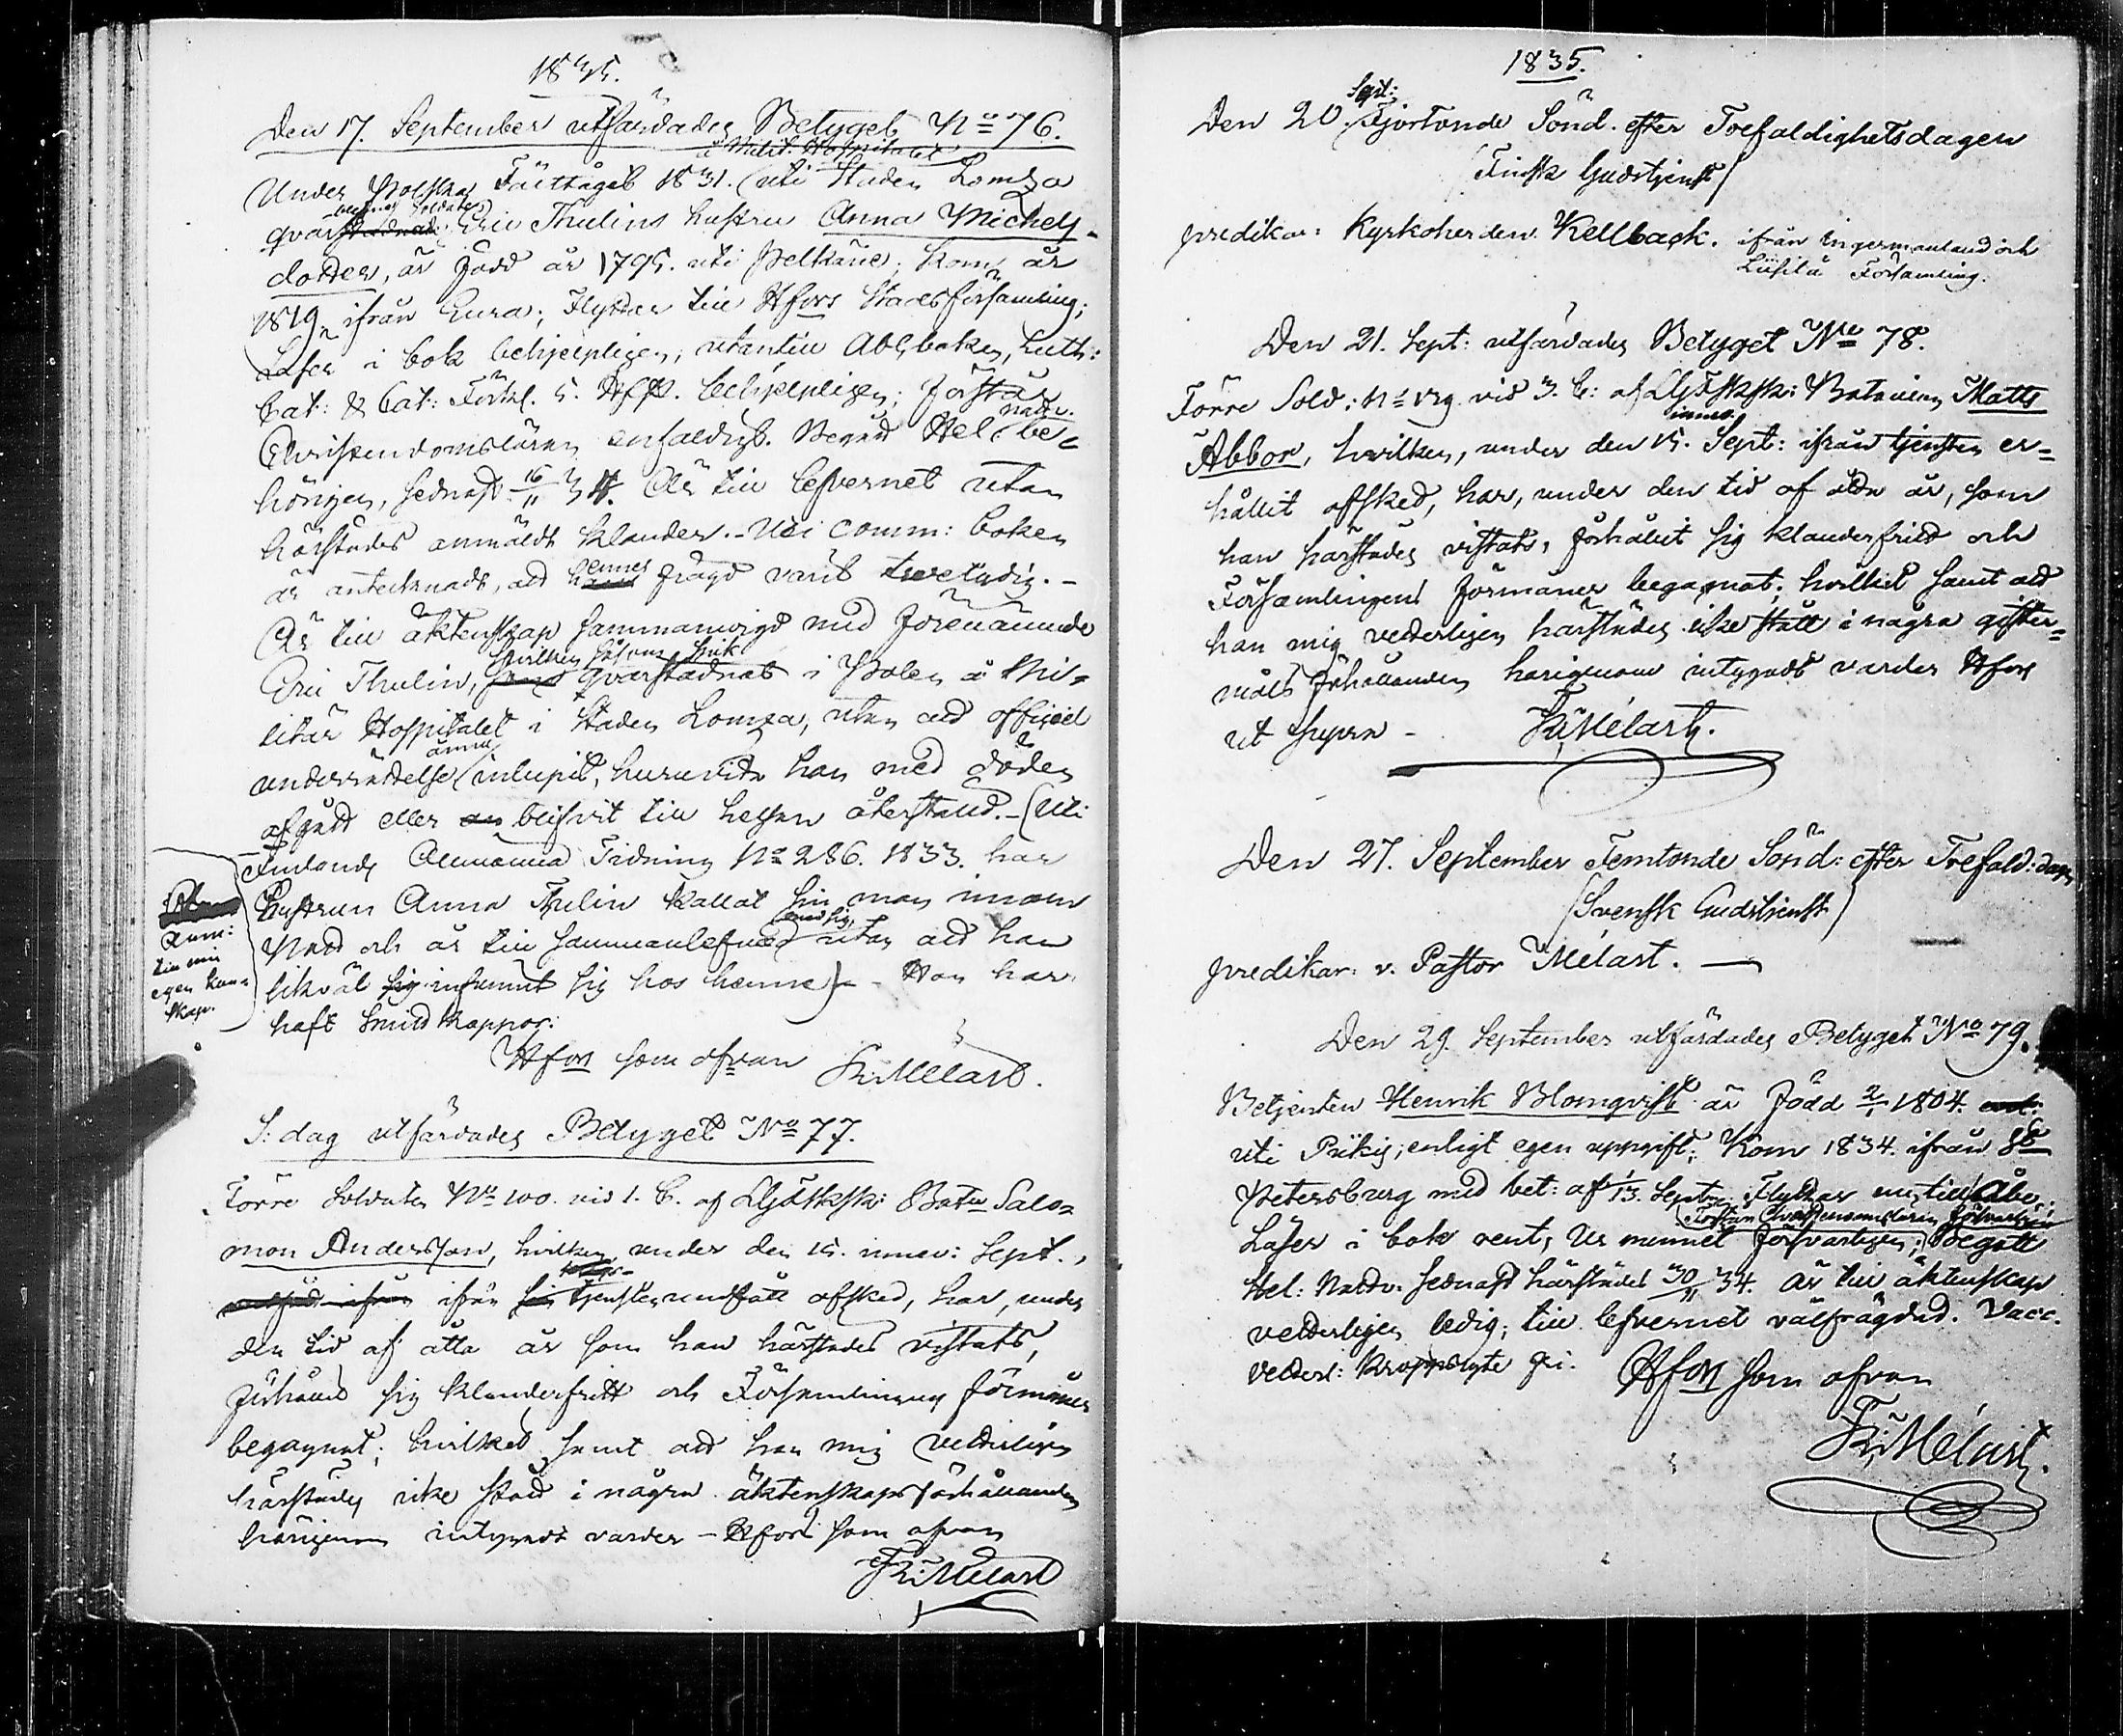 1835.
Den 17. September utfärdades Betyget No 76.
å Milit. Hospitalet
Under Polska Fälttåget 1831. uti Staden Lomza
blefne Soldaten
qvarstadnade Eric Thulins hustru Anna Michels-
dotter, är född år 1795. uti Pelkäne; kom år
1819. ifrån Eura; Flyttar till Hfors Stadsförsamling;
Läser i bok behjelpligen; utantill Abcboken, Luth:
Cat: & Cat: Förkl. S. Hfft. behjelpligen; förstår
Christendomsläran enfaldigt. Begått Hel. nattv. be-
hörigen, sednast 16/11 34. Är till lefvernet utan
härstädes anmäldt klander. - Uti Comm: boken
är antecknadt, att hennes frägd varit tvetydig. -
Är till äktenskap sammanvigd med förenämnde
hvilken sjuk
Eric Thulin, som qvarstadnat i Polen å Mi-
litär Hospitalet i Staden Lomza, utan att officiel
ännu
underrättelse inlupit, huruvida han med döden
afgått eller an blifvit till helsan återställd. - (Uti
Finlands Allmänna Tidning No 286. 1833. har
Hustrun Anna Thulin kallat sin man innom
med sig,
Natt och år till sammanlefnad utan att han
likväl sig infunnit sig hos henne) - Hon har
haft Smittkoppor.
Anm:
till min
egen kun-
skap.
Hfors som ofvan Fr: Mélart.
S: dag utfärdades Betyget No 77.
Förre Soldaten No 100. vid 1. C. af LGdSksk: Batn Salo-
mon Andersson, hvilken under den 15. innev: Sept.,
ifrån sin tjensten undfått afsked, har, under
den tid af åtta år som han härstädes vistats,
förhållit sig klanderfritt och Församlingens förmåner
begagnat; hvilket samt att han mig vetterligen
härstädes icke stått i några äktenskapsförhållanden
härigenom intygadt varder - Hfors som ofvan
Fr: Mélart
1835.
Sept:
Den 20. Fjortonde Sönd. efter Trefaldighetsdagen
(Finsk Gudstjenst)
predikar: Kyrkoherden Kellback. ifrån Ingermanland och
Liisilä Församling.
Den 21. Sept: utfärdades Betyget No 78.
Förre Sold: No 129 vid 3. C: af LGdSksk: Bataillon Matts
innev.
Abbor, hvilken, under den 15. Sept: ifrån tjensten er-
hållit afsked, har, under den tid af åtta år, som
han härstädes vistats, förhållit sig klanderfritt och
Församlingens förmåner begagnat; hvilket samt att
han mig vetterligen härstädes icke stått i några gifter-
måls förhållanden härigenom intygadt varder Hfors
ut supra - Fr: Mélart.
Den 27. September Femtonde Sönd: efter Trefald: dagen
(Svensk Gudstjenst)
predikar: v. Pastor Mélart. -
Den 29. September utfärdades Betyget No 79.
Betjenten Henrik Blomqvist är född 2/1 1804.
uti Piikis; enligt egen uppgift; Kom 1834. ifrån St
Petersburg med bet: af 1/13. Sept Flyttar nu till Åbo;
Förstår Christendomsläran försvarligen
Läser i bok rent; Ur minnet försvarligen; Begått
Hel: Nattv. sednast härstädes 30/11 34. Är till äktenskap
vetterligen ledig; till lefvernet välfrägdad. Vacc.
vetterl: kroppslyte fri. Hfors som ofvan
Fr: Mélart.